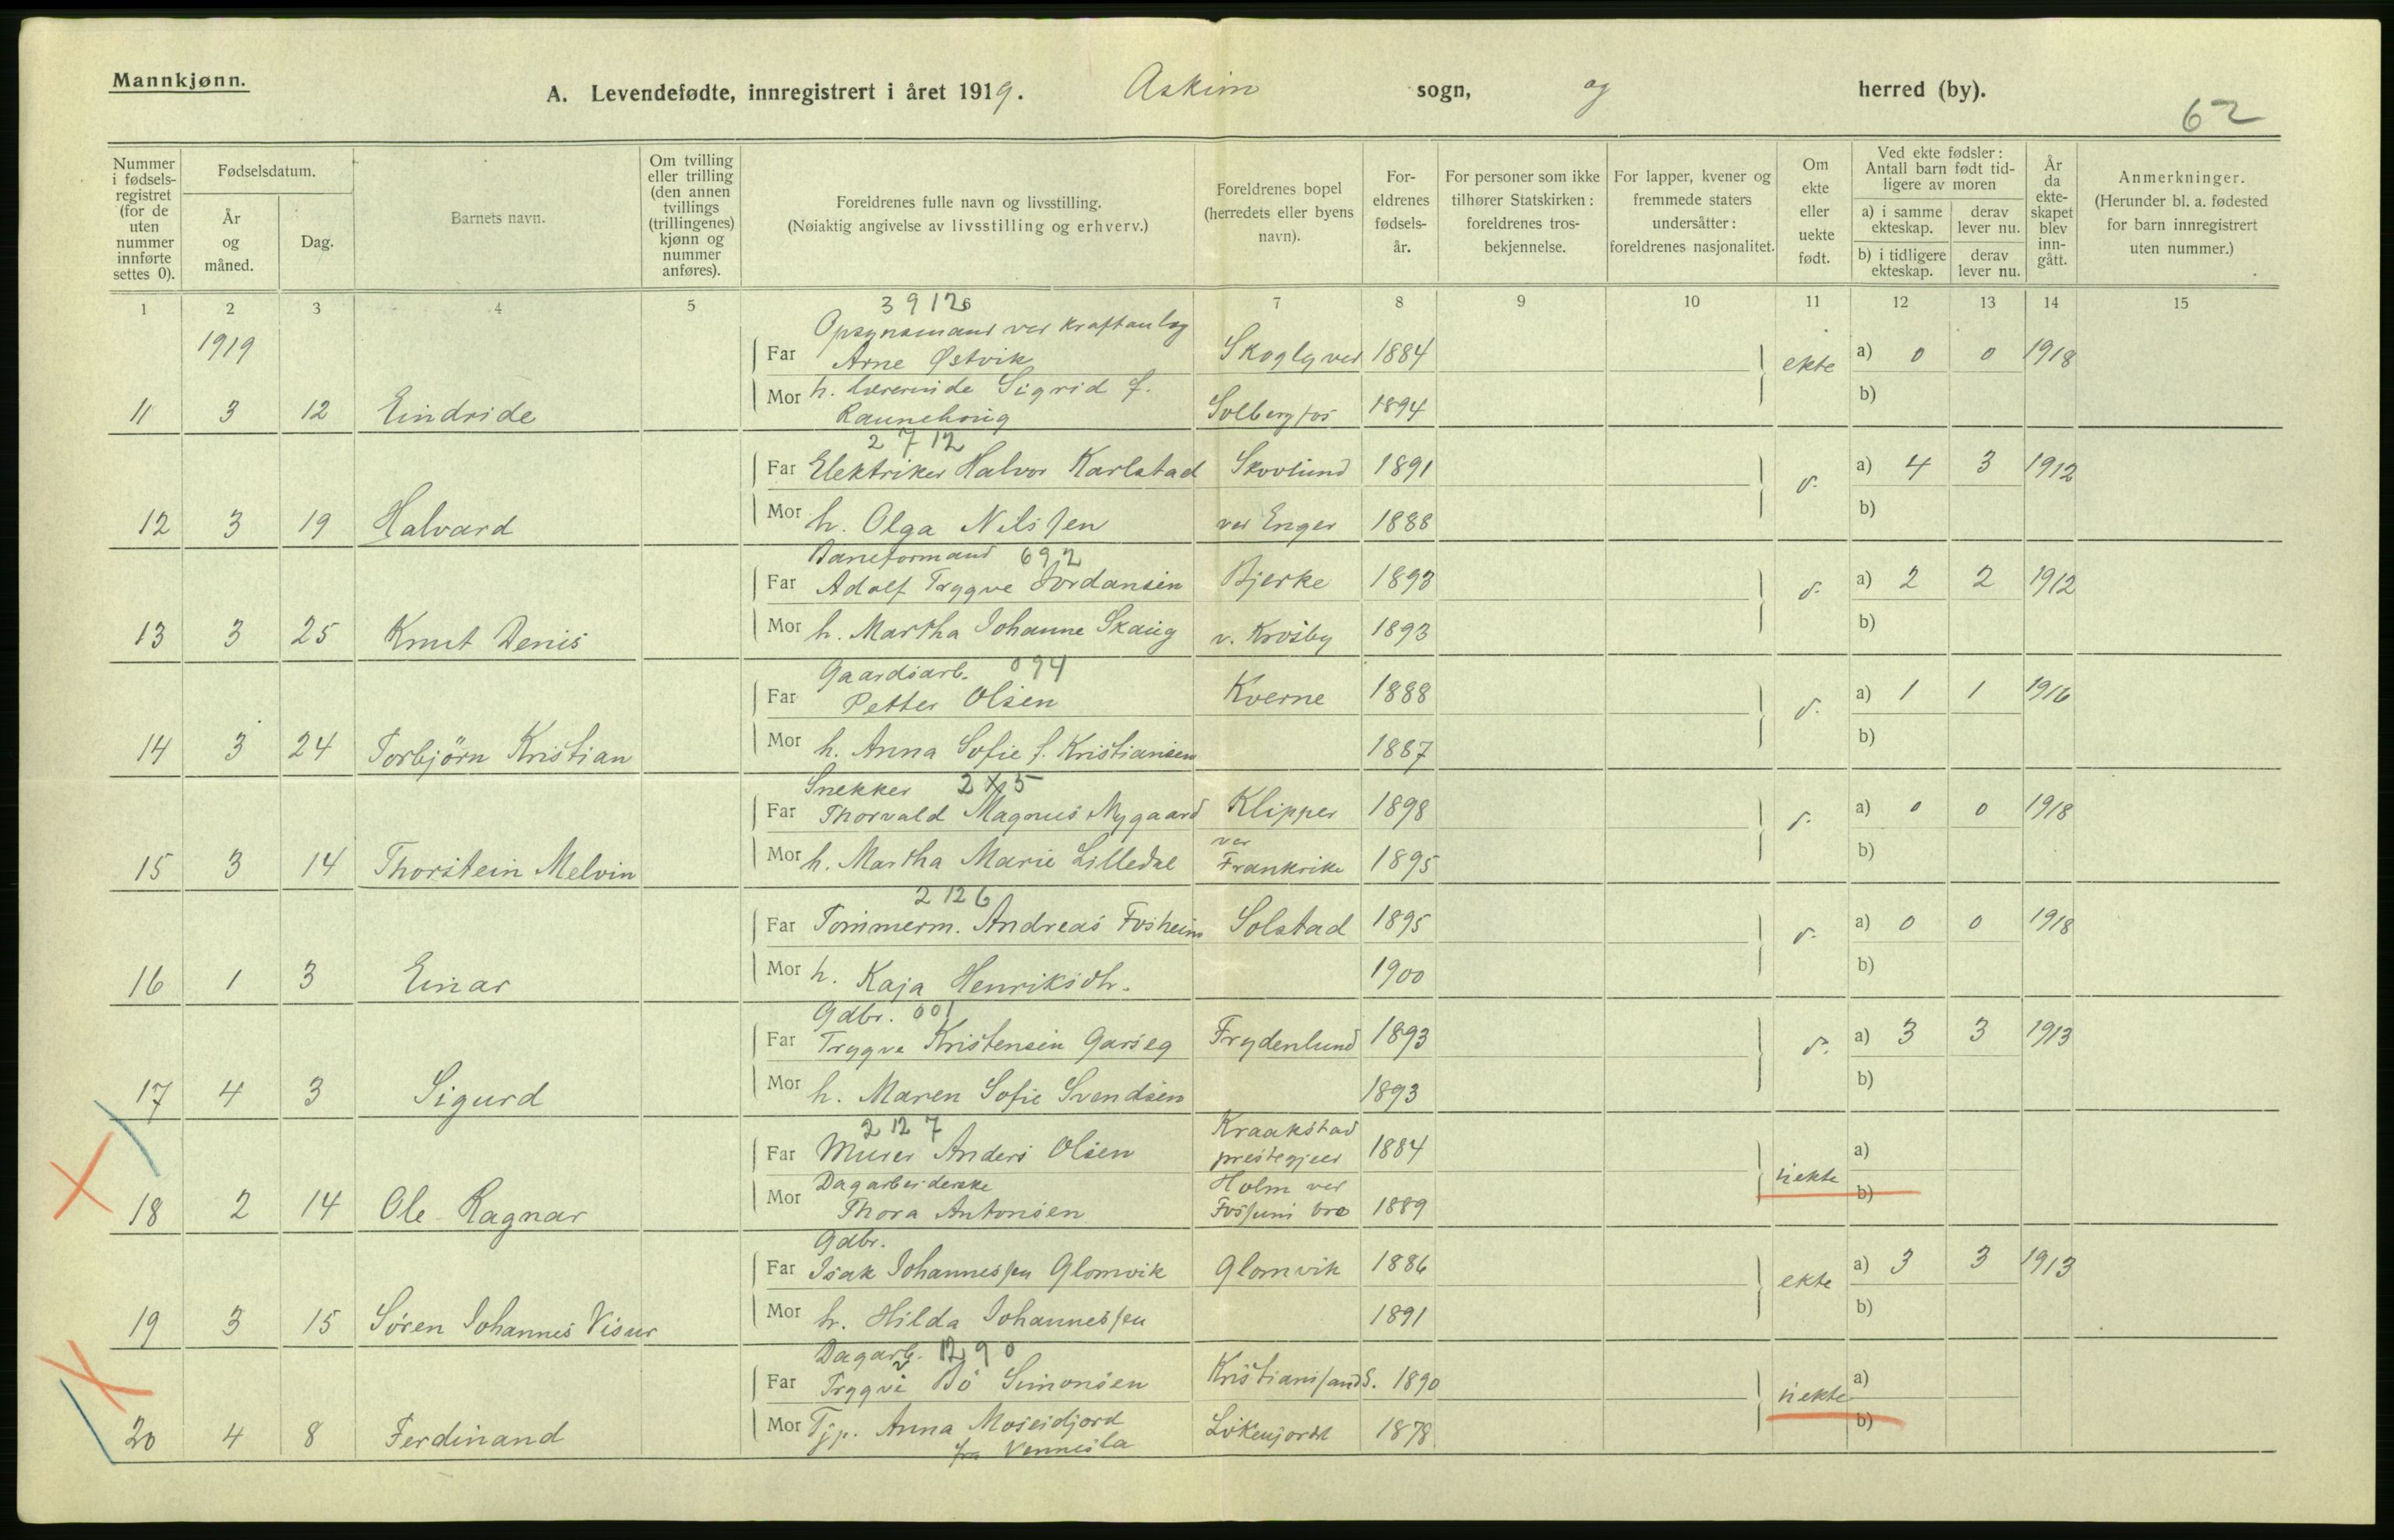 Mannkjønn.
A. Levendefødte, innregistrert i året 1919. Askim sogn, og herred (by).
62
Nummer i fødselsregistret (for de uten nummer innførte settes 0).
Fødselsdatum.
År og måned.
Dag.
Barnets navn.
Om tvilling eller trilling (den annen tvillings (trillingenes) kjønn og nummer anføres).
Foreldrenes fulle navn og livsstilling.
(Nøiaktig angivelse av livsstilling og erhverv.)
Foreldrenes bopel (herredets eller byens navn).
Foreldrenes fødselsår.
For personer som ikke tilhører Statskirken: foreldrenes trosbekjennelse.
For lapper, kvener og fremmede staters undersåtter: foreldrenes nasjonalitet.
Om ekte eller uekte født.
Ved ekte fødsler: Antall barn født tidligere av moren
a) i samme ekteskap. derav lever nu.
b) i tidligere ekteskap. derav lever nu.
År da ekteskapet blev inngått.
Anmerkninger.
(Herunder bl. a. fødested for barn innregistrert uten nummer.)
1 2 3 4 5 7 8 9 10 11 12 13 14 15
3912
1919 Opsynsmand ved kraftanlæg
Far Arne Østvik Skogly ved 1884 ekte a) 0 0 1918
Mor h. Lærerinde Sigrid f. b)
11 3 12 Eindride Solbergfos 1894
2712
Far Elektriker Halvor Karlstad Skovlund 1891 a) 4 3 1912
12 3 19 Halvard Mor h. Olga Nilssen ved Enger 1888 b)
Baneformand 692
Far Adolf Trygve Jordansen Bjerke 1893 a) 2 2 1912
13 3 25 Knut Denis Mor h. Martha Johanne Skaug v. Krosby 1893 b)
Gaardsarb. 094
Far Petter Olsen Kverne 1888 a) 1 1 1916
14 3 24 Torbjörn Kristian Mor h. Anna Sofie f. Kristiansen 1887 b)
Snekker
Far Thorvald Magnus Nygaard Klipper 1898 a) 0 0 1918
ved
15 3 14 Thorstein Melvin Mor h. Martha Marie Lilledal Frankrike 1895 b)
2126
Far Tømmerm. Andreas Fosheim Solstad 1895 a) 0 0 1918
16 1 3 Einar Mor h. Kaja Henriksdtr. 1900 b)
Gdbr. 001
Far Trygve Kristensen Garseg Frydenlund 1893 a) 3 3 1913
17 4 3 Sigurd Mor h. Maren Sofie Svendsen 1893 b)
2127 Kraakstad
Far Murer Anders Olsen prestegjeld 1884 a)
Dagarbeiderske Holm ved uekte b)
18 2 14 Ole Ragnar Mor Thora Antonsen Fossum bro 1889
Gdbr.
Far Isak Johannessen Glomvik Glomvik 1886 ekte a) 3 3 1913
19 3 15 Søren Johannes Visur Mor h. Hilda Johannessen 1891 b)
Dagarb. 1290
Far Trygve Bö Simonsen Kristianssand S. 1890 uekte a)
20 4 8 Ferdinand Mor Tjp. Anna Moseidjord Likenjordet 1878 b)
fra Vennesla